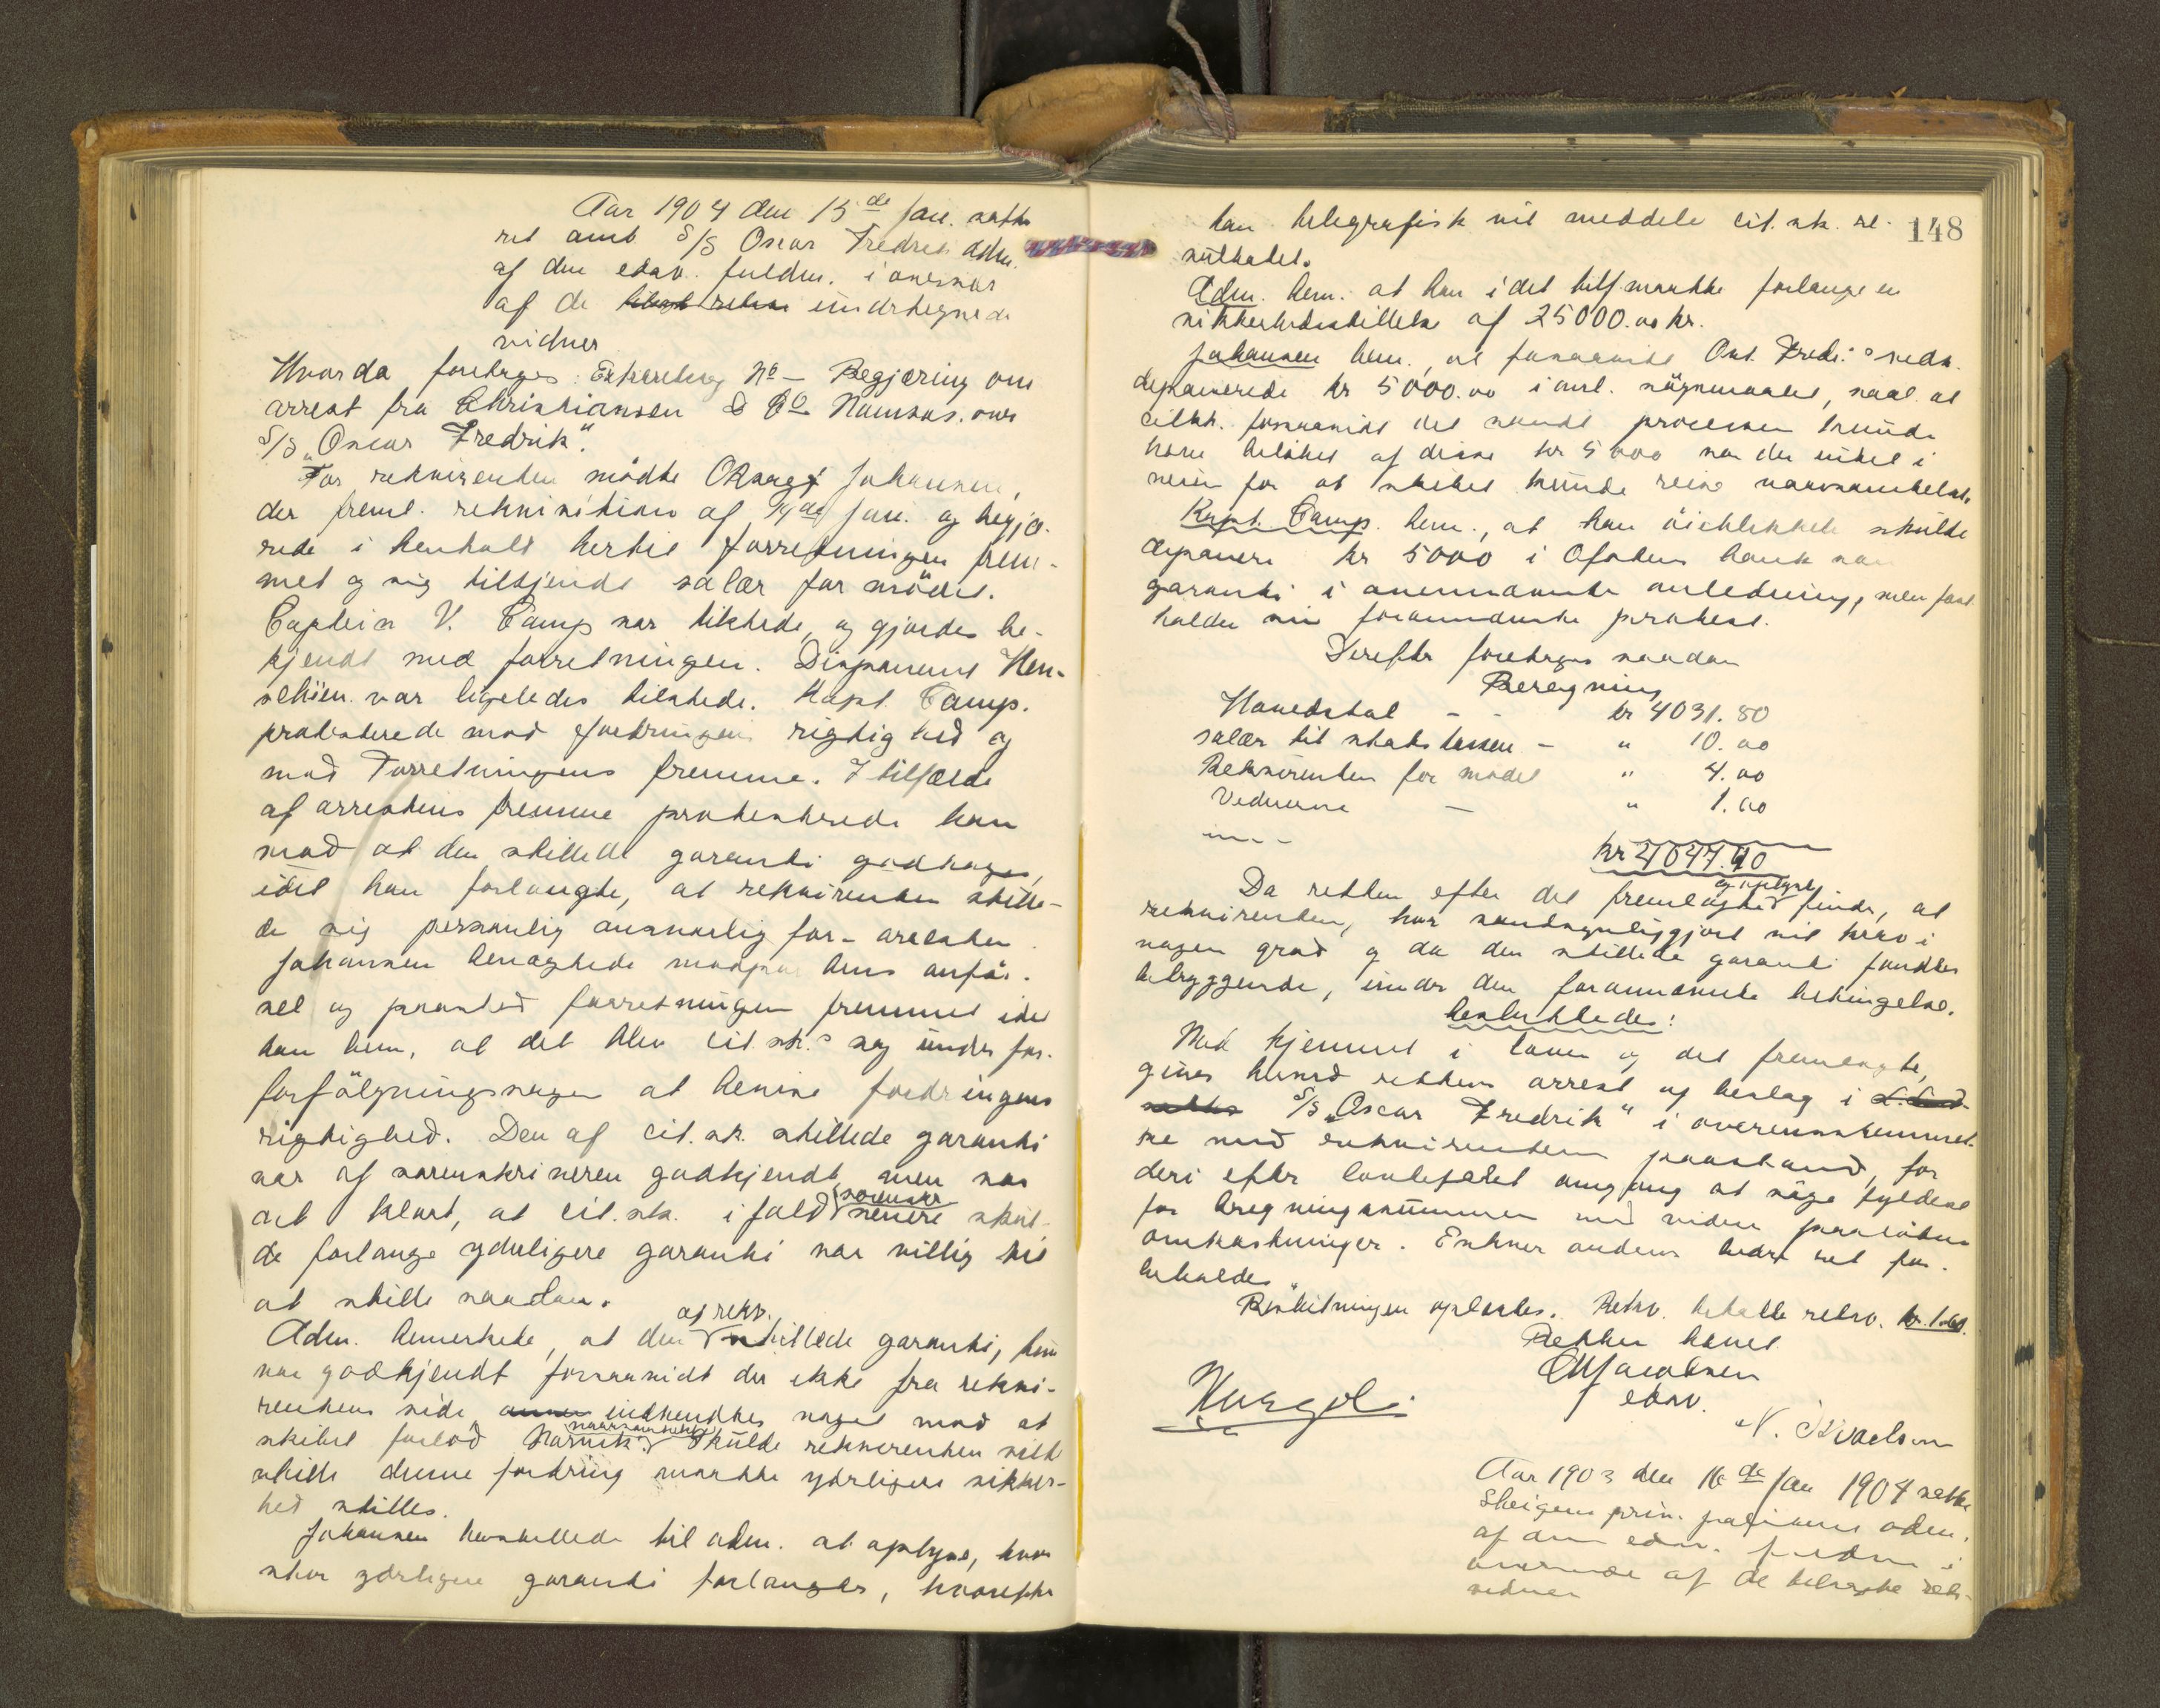 Aar 1904 den 15de Jan. sattes
ret omb. S/S Oscar Fredrik adm.
af den edsv. fuldm. i overvær
af de undertegnede
vidner
Hvorda foretoges: Extraretssag No — Begjæring om
arrest fra Christiansen & Co Namsos. over
S/S „Oscar Fredrik".
For rekvirenten mödte Johansen,
der freml. rekvisition af 14de Jan. og begjæ-
rede i henhold hertil forretningen frem-
met og sig tilkjendt salær for mödet.
Captein V. Camp var tilstede, og gjordes be-
kjendt med forretningen. Disponent Hen-
var ligeledes tilstede. Kapt. Camp.
protesterede mod fordringens rigtighed og
mod Forretningens fremme. I tilfælde
af arrestens fremme protesterede han
mod at den stillede garanti godtages,
idet han forlangte, at rekvirenten stille-
de sig personlig ansvarlig for arresten.
Johansen benægtede modpartens anför-
sel og paastod forretningen fremmet idet
han bem, at det blev cit. sk.s sag under for-
forfölgningssagen at bevise fordringens
rigtighed. Den af cit. sk. stillede garanti
var af sorenskriveren godkjendt, men var
det klart, at cit. sk. ifald sorenskr. senere skul-
de forlange yderligere garanti var villig til
at stille saadan.
Adm. bemerkede, at den af rekv. stillede garanti, kun
var godkjendt forsaavidt der ikke fra rekvi-
rentens side indvendtes noget mod at
skibet forlod Narvik. Skulde rekvirenten
stille denne fordring maatte yderligere sikker-
hed stilles.
Johansen henstillede til adm. at oplyse, hvor
stor yderligere garanti forlanges, hvorefter
148
han telegrafisk vil meddele cit. sk. re-
sultatet.
Adm. bem. at han i det tilf. maatte forlange en
sikkerhedsstillelse af 25000.00 kr.
Johansen bem., at forsaavidt Osc. Fredr.s rede.
deponerede kr 5000.00 i anl. sögsmaalet, saal. at
cit sk. forsaavidt det vandt processen kunde
have belöbet af disse kr 5000 var der intet i
veien for at skibet kunde reise
Kapt. Camp. bem., at han öieblikkelig skulde
deponere kr 5000 i Ofotens bank som
garanti i ovennævnte anledning, men fast-
holder sin forannævnte protest.
Derefter foretoges saadan
Beregning
Hovedstol - - kr 4031.80
salær til statskassen - " 10.00
Rekvirenten for mödet " 4.00
Vidnerne — " 1.00
kr 4047.40
Da retten efter det fremlagte og oplyste finder, at
rekvirenten, har sandsynliggjort sit krav i
nogen grad og da den stillede garanti fandtes
betryggende, under den forannævnte betingelse.
besluttedes:
Med hjemmel i loven og det fremlagte,
gives herved retten arrest og beslag i
S/S „Oscar Fredrik" i overensstemmel-
se med rekvirentens paastand, for
deri efter lovbefalet omgang at söge fyldest
for beregningssummen med videre paalöbne
omkostninger. Enhver andens bedre ret for-
beholdes.
Beslutningen oplæstes. Rekv. betalte retsv. kr. 1.00.
Retten hævet
Jacobsen
edsv.
Aar 1903 den 16de Jan 1904 sattes
Steigens
af den edsv. fuldm i
overvær af de tilsagte rets-
vidner